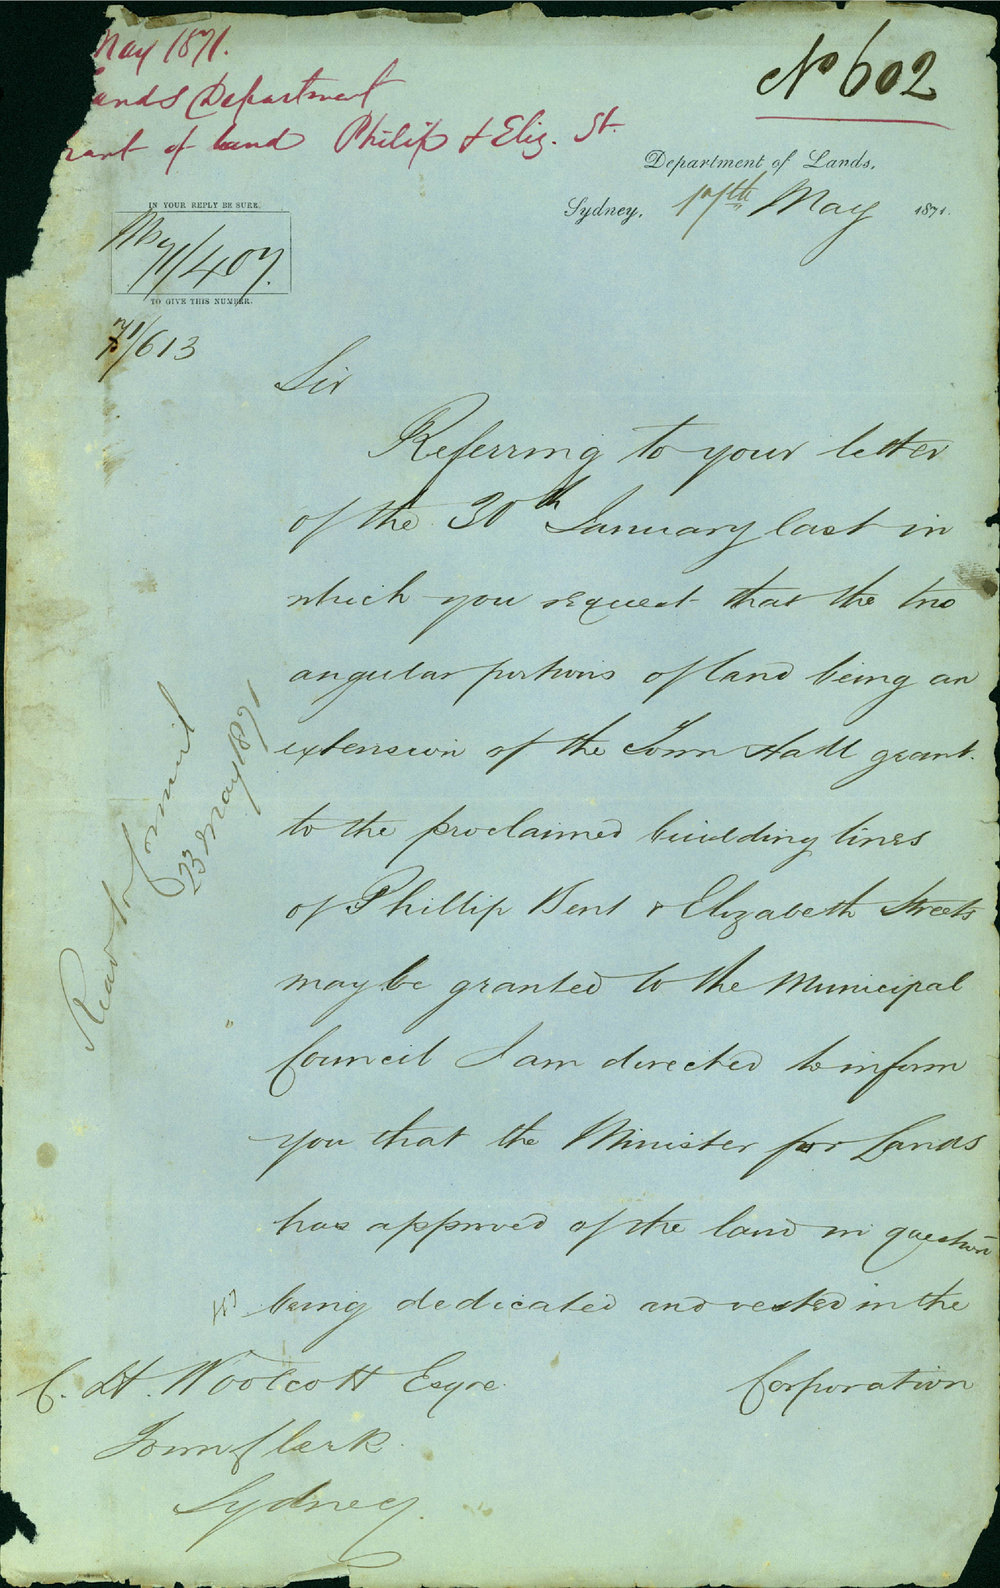 May 1871.
Lands Department
rant of land Philip & Eliz. St.
No 602
Department of Lands,
Sydney, 17th May 1871.
IN YOUR REPLY BE SURE,
71/407.
TO GIVE THIS NUMBER.
71/613
Sir
Referring to your letter
of the 30th January last in
which you request that the two
angular portions of land being an
extension of the Town Hall grant
to the proclaimed building lines
of Phillip Bent & Elizabeth Streets
may be granted to the Municipal
Council I am directed to inform
you that the Minister for Lands
has approved of the land in question
being dedicated and vested in the
Corporation
C. H. Woolcott Esqre
Town Clerk
Sydney.
Read to Council
23 May 1871